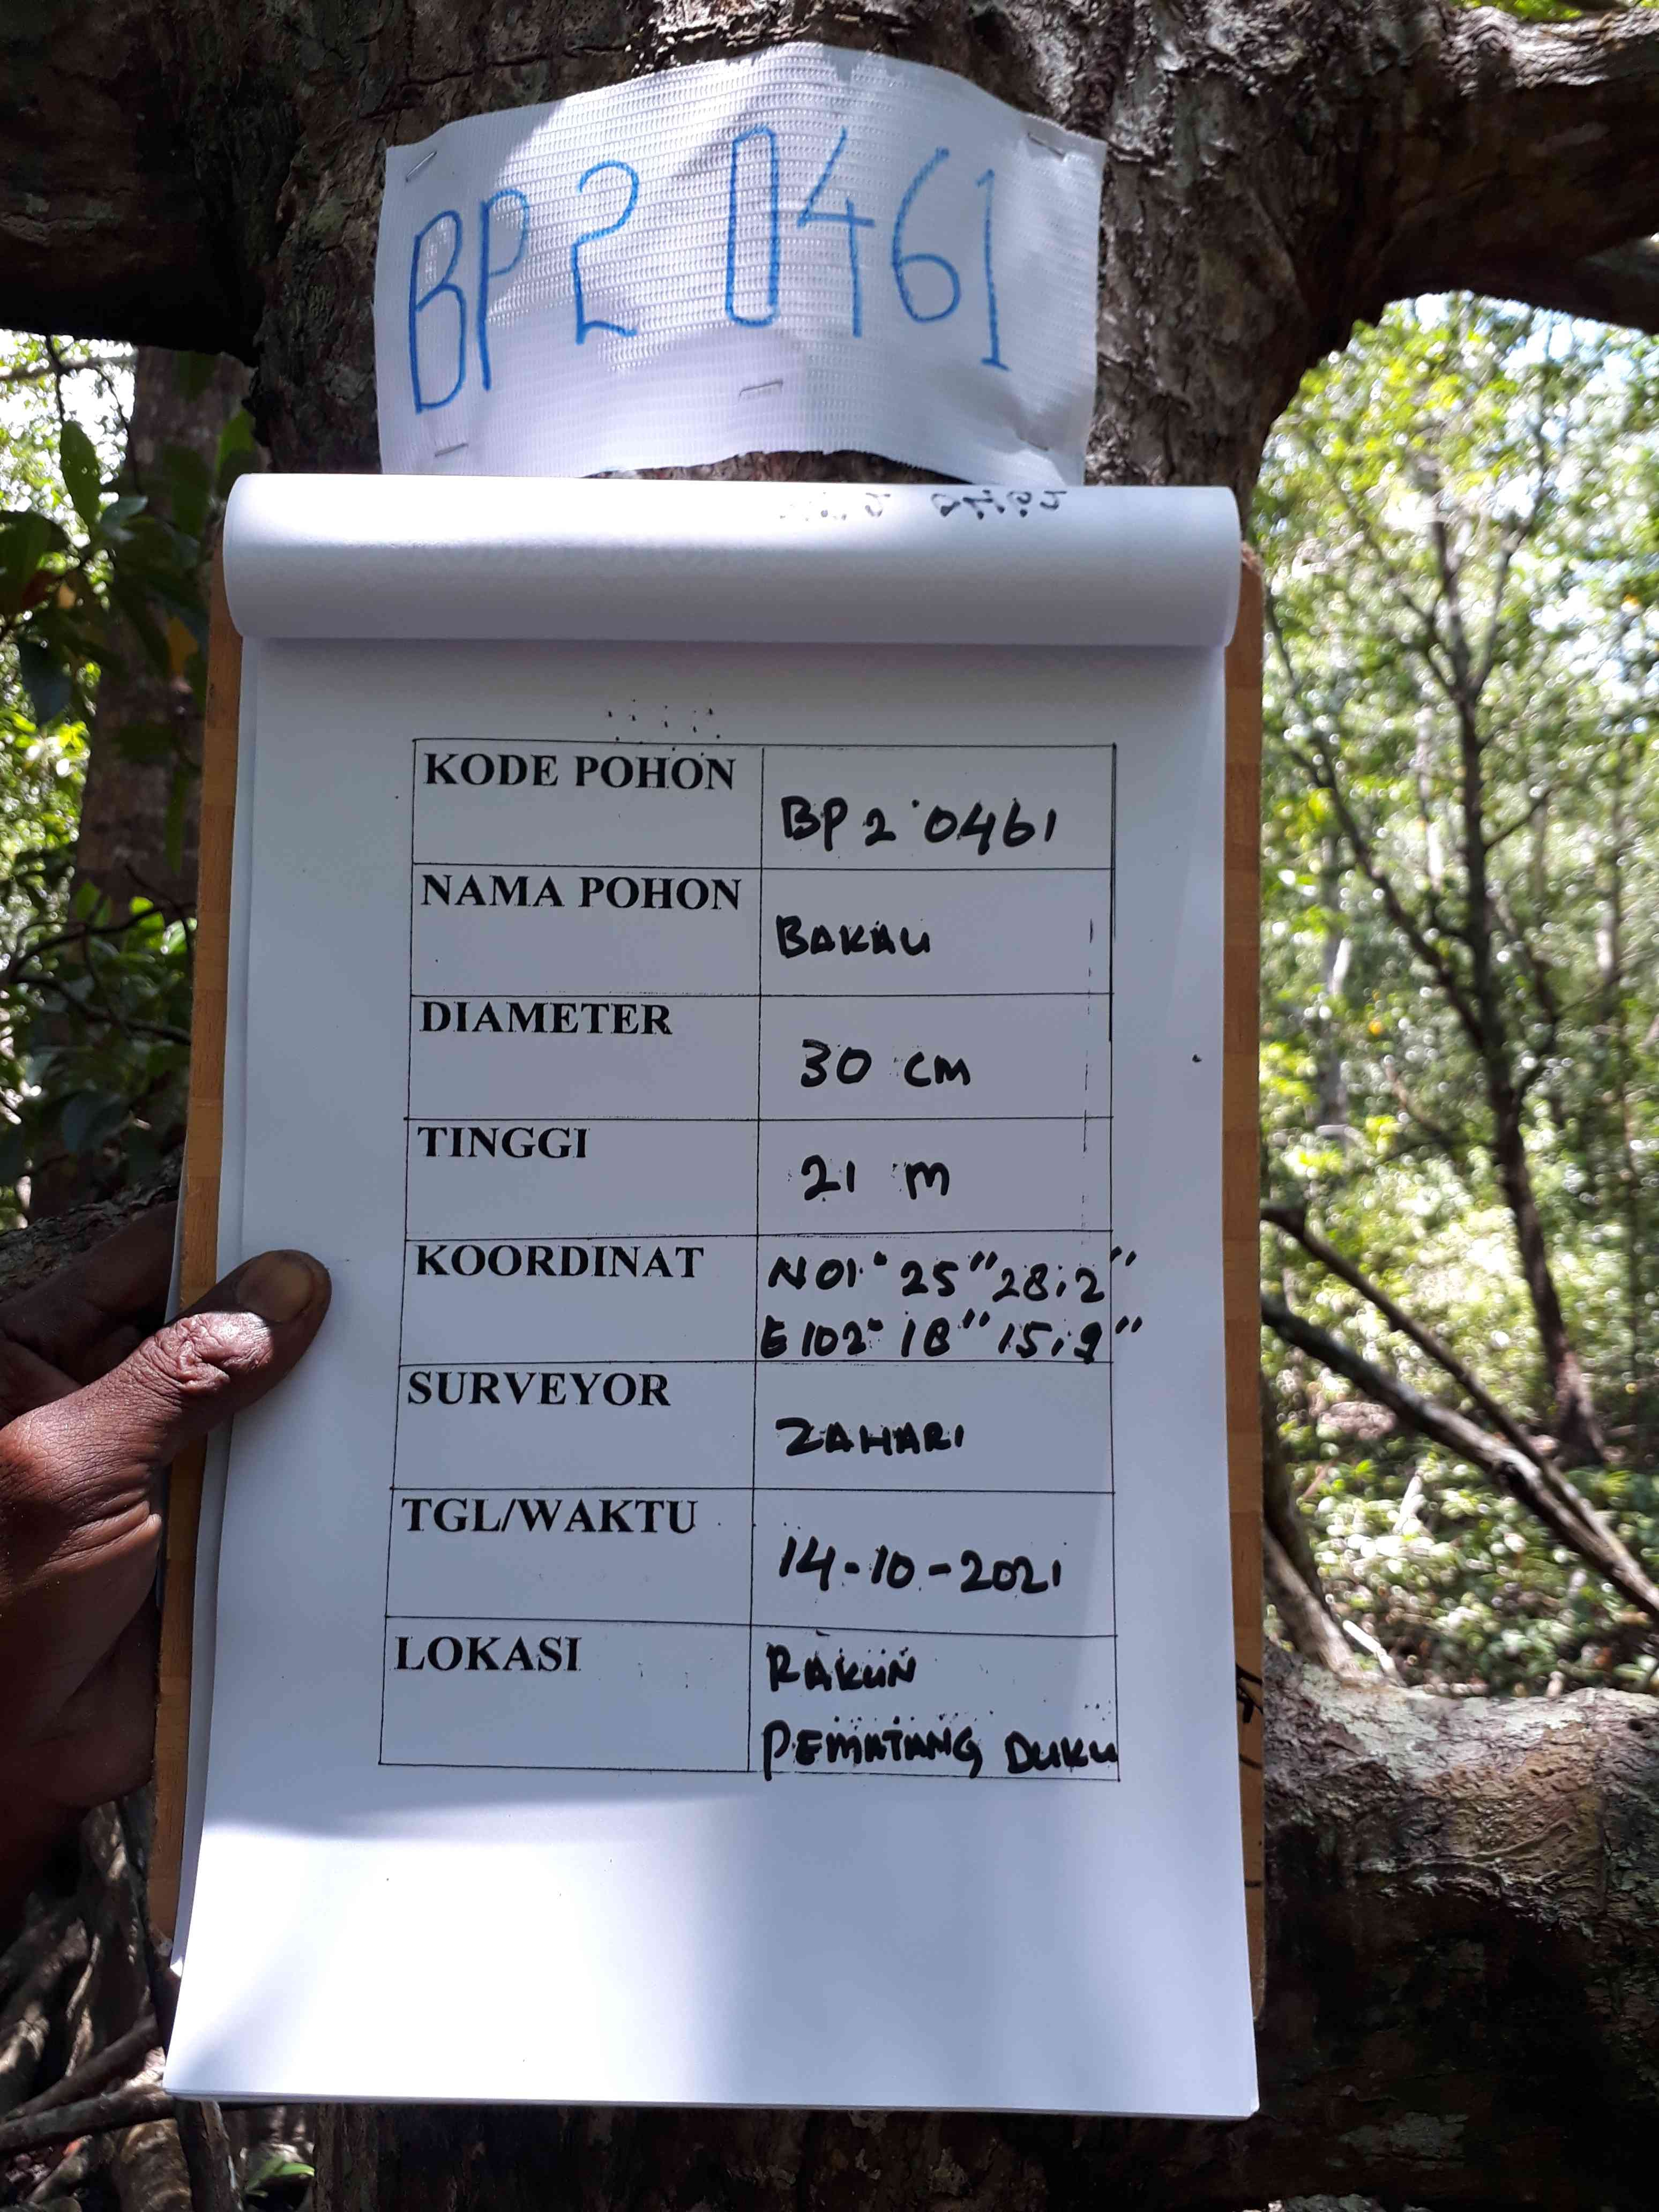 BP2 0461
KODE POHON
BP2 0461
NAMA POHON
BAKAU
DIAMETER
30 CM
TINGGI
21 M
KOORDINAT
N 01° 25" 28,2"
E 102° 18" 15,9"
SURVEYOR
ZAHARI
TGL/WAKTU
14-10-2021
LOKASI
RAKUN
PEMATANG DUKU